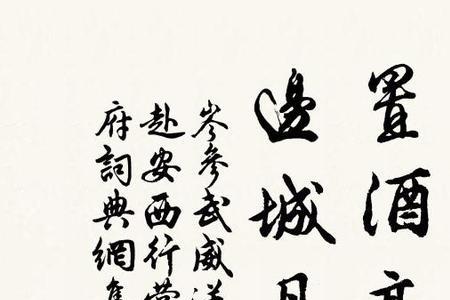 置酒
邊城
岑參武威送
赴安西行營
府詞典網